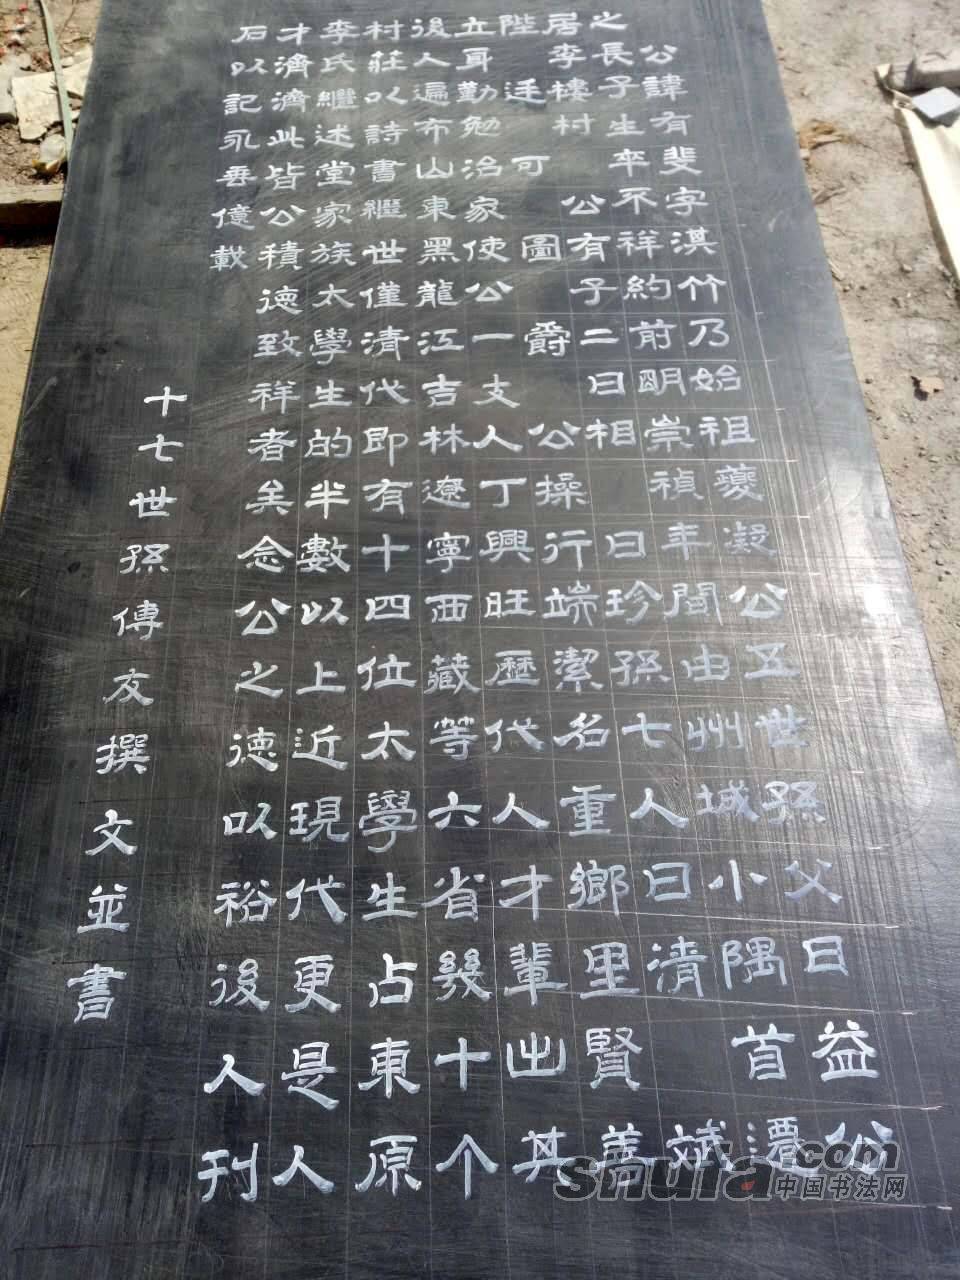 公諱有斐字淇竹乃始祖夔凝公五世孫父曰益公
之長子生卒不祥約前明崇禎年間由州城小隅首遷
居李樓村 公有子二曰相 曰珍孫七人曰清 斌
陛 廷 可 圖 爵 公操行端潔名重鄉里賢善
立耳勤勉治家使公一支人丁興旺歷代人才輩出其
後人遍布山東黑龍江吉林遼寧西藏等六省幾十个
村莊以詩書繼世僅清代即有十四位太學生占東原
李氏繼述堂家族太學生的半數以上近現代更是人
才濟濟此皆公積德致祥者矣念公之德以裕後人刊
石以記永垂億載
十七世孫傅友撰文並書
shufa.com
中国书法网